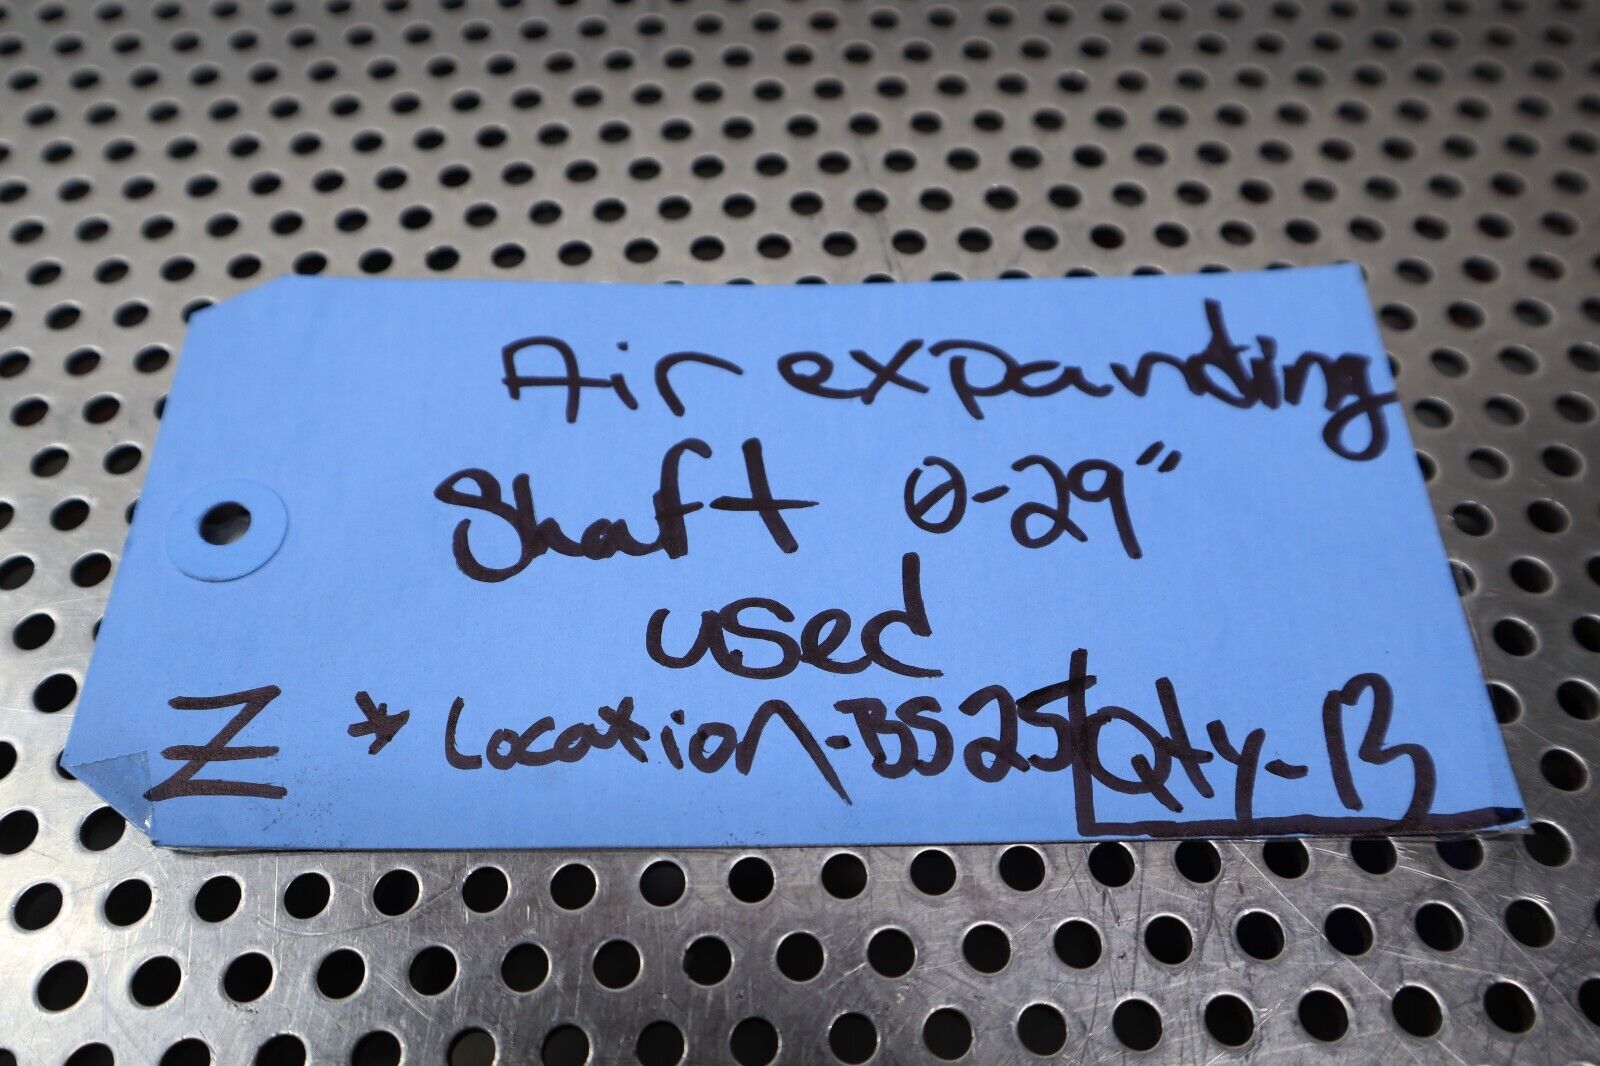 Air expanding
Shaft 0-29"
used
Z * Location-BS25 Qty-13